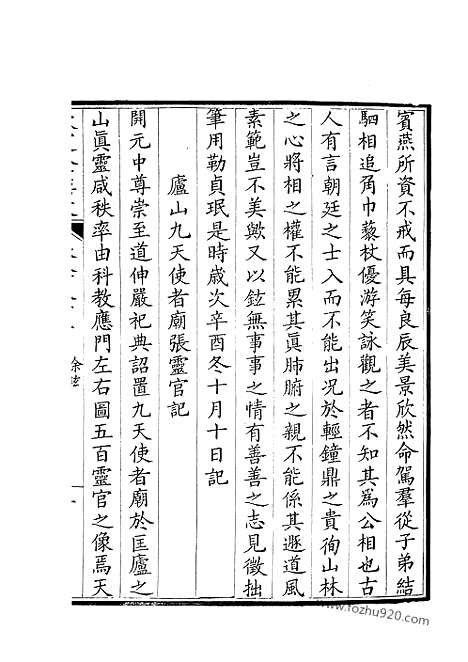 賓燕所資不戒而具每良辰美景欣然命駕羣從子弟結
駟相追角巾藜杖優游笑詠觀之者不知其爲公相也古
人有言朝廷之士入而不能出况於輕鐘鼎之貴徇山林
之心將相之權不能累其眞肺腑之親不能係其遯道風
素範豈不美歟又以鉉無事事之情有善善之志見徵拙
筆用勒貞珉是時歳次辛酉冬十月十日記
廬山九天使者廟張靈官記
開元中尊崇至道伸嚴祀典詔置九天使者廟於匡廬之
山眞靈咸秩率由科教應門左右圖五百靈官之像焉天
徐鉉
www.fozhu920.com